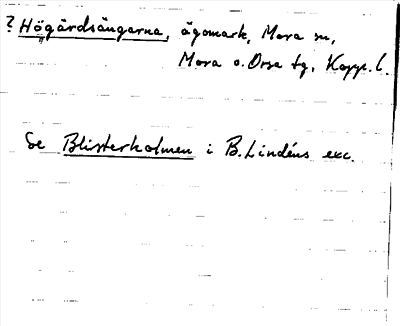 ? Högårdsängarna, ägomark, Mora sn,
Mora o. Orsa tg, Kopp. l.
Se Blisterholmen i B. Lindéns exc.